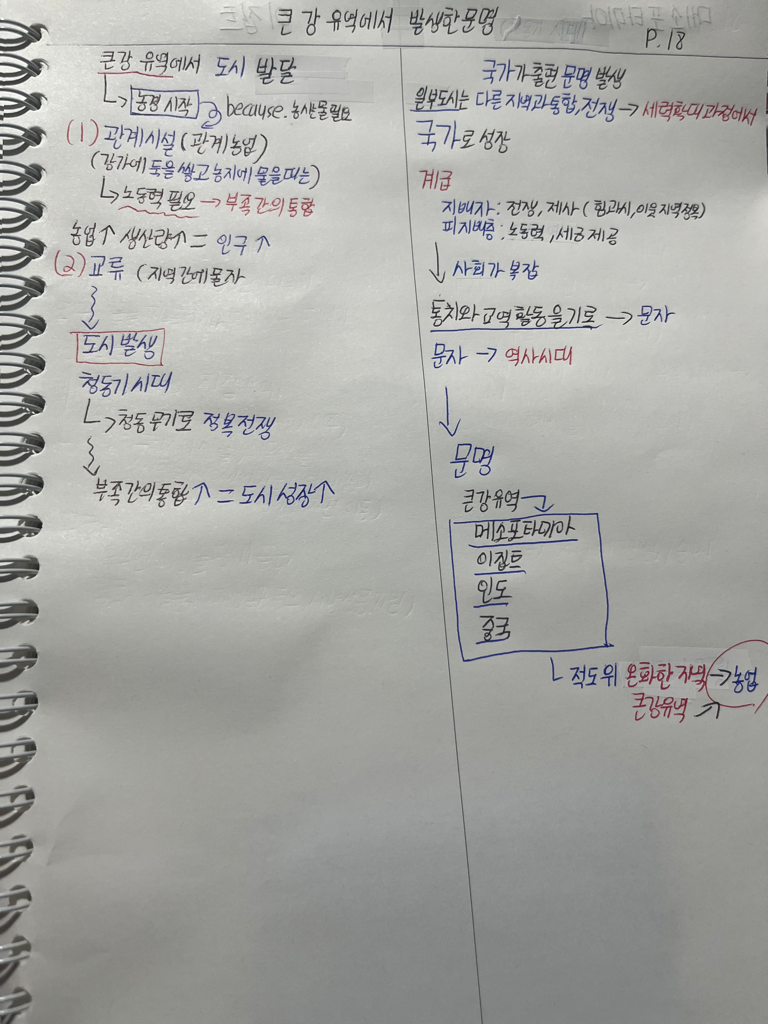 큰 강 유역에서 발생한 문명
P.18
큰강 유역에서 도시 발달
↳ 농경 시작 because. 농사물 필요
(1) 관계시설 (관계농업)
(강가에 둑을 쌓고 농지에 물을 대는)
↳ 노동력 필요 → 부족간의 통합
농업↑ 생산량↑ = 인구↑
(2) 교류 (지역간에 물자
도시 발생
청동기 시대
↳ 청동무기로 정복 전쟁
부족간의 통합↑ = 도시 성장↑
국가가 출현 문명 발생
일부도시는 다른 지역과 통합, 전쟁 → 세력확대 과정에서
국가로 성장
계급
지배자 : 전쟁, 제사 (힘과시, 이웃 지역정복)
피지배층 : 노동력, 세금 제공
↓ 사회가 복잡
통치와 교역 활동을 기록 → 문자
문자 → 역사시대
↓
문명
큰강유역
메소포타미아
이집트
인도
중국
↳ 적도위 온화한 지역 → 농업
큰강유역 ↗